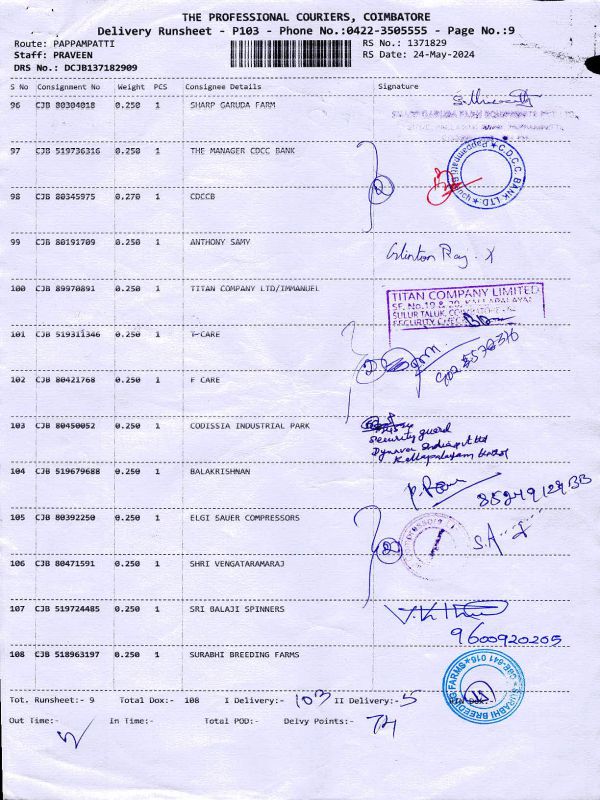 THE PROFESSIONAL COURIERS, COIMBATORE
Delivery Runsheet - P103 - Phone No.:0422-3505555 - Page No.:9
Route: PAPPAMPATTI RS No.: 1371829
Staff: PRAVEEN RS Date: 24-May-2024
DRS No.: DCJB137182909
S No Consignment No Weight PCS Consignee Details Signature
96 CJB 80304018 0.250 1 SHARP GARUDA FARM
97 CJB 519736316 0.250 1 THE MANAGER CDCC BANK
C.D.C.C. BANK LTD.
98 CJB 80345975 0.270 1 CDCCB
2
99 CJB 80191709 0.250 1 ANTHONY SAMY
100 CJB 89970891 0.250 1 TITAN COMPANY LTD/IMMANUEL
TITAN COMPANY LIMITED
SF. No.19 & 20, KALLAPALAYAM
SULUR TALUK,
SECURITY
101 CJB 519311346 0.250 1 T-CARE
2
102 CJB 80421768 0.250 1 F CARE
103 CJB 80450052 0.250 1 CODISSIA INDUSTRIAL PARK
Security guard
104 CJB 519679688 0.250 1 BALAKRISHNAN
105 CJB 80392250 0.250 1 ELGI SAUER COMPRESSORS
2
106 CJB 80471591 0.250 1 SHRI VENGATARAMARAJ
107 CJB 519724485 0.250 1 SRI BALAJI SPINNERS
9600920205
108 CJB 518963197 0.250 1 SURABHI BREEDING FARMS
SURABHI BREEDING FARMS * CBE-641 016
Tot. Runsheet:- 9 Total Dox:- 108 I Delivery:- 103 II Delivery:- 5
Out Time:- In Time:- Total POD:- Delvy Points:- 74